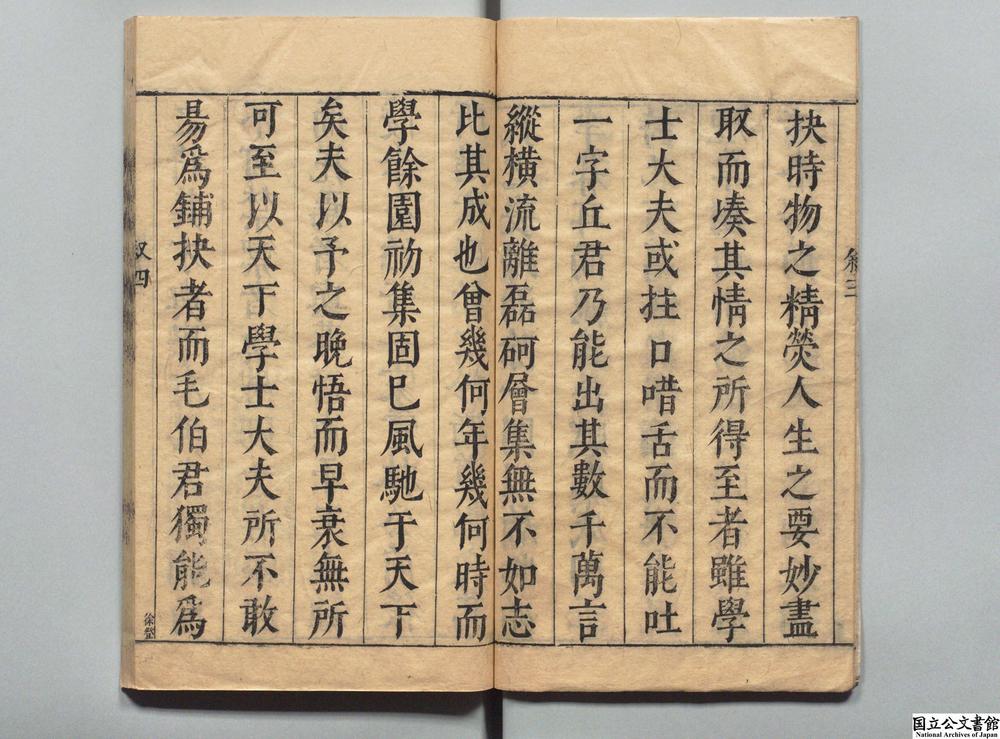 敘三
抉時物之精熒人生之要妙盡
取而湊其情之所得至者雖學
士大夫或拄口唶舌而不能吐
一字丘君乃能出其數千萬言
縱橫流離磊砢層集無不如志
比其成也曾幾何年幾何時而
學餘園初集固已風馳于天下
矣夫以予之晚悟而早衰無所
可至以天下學士大夫所不敢
易為鋪抉者而毛伯君獨能為
叙四
国立公文書館
National Archives of Japan